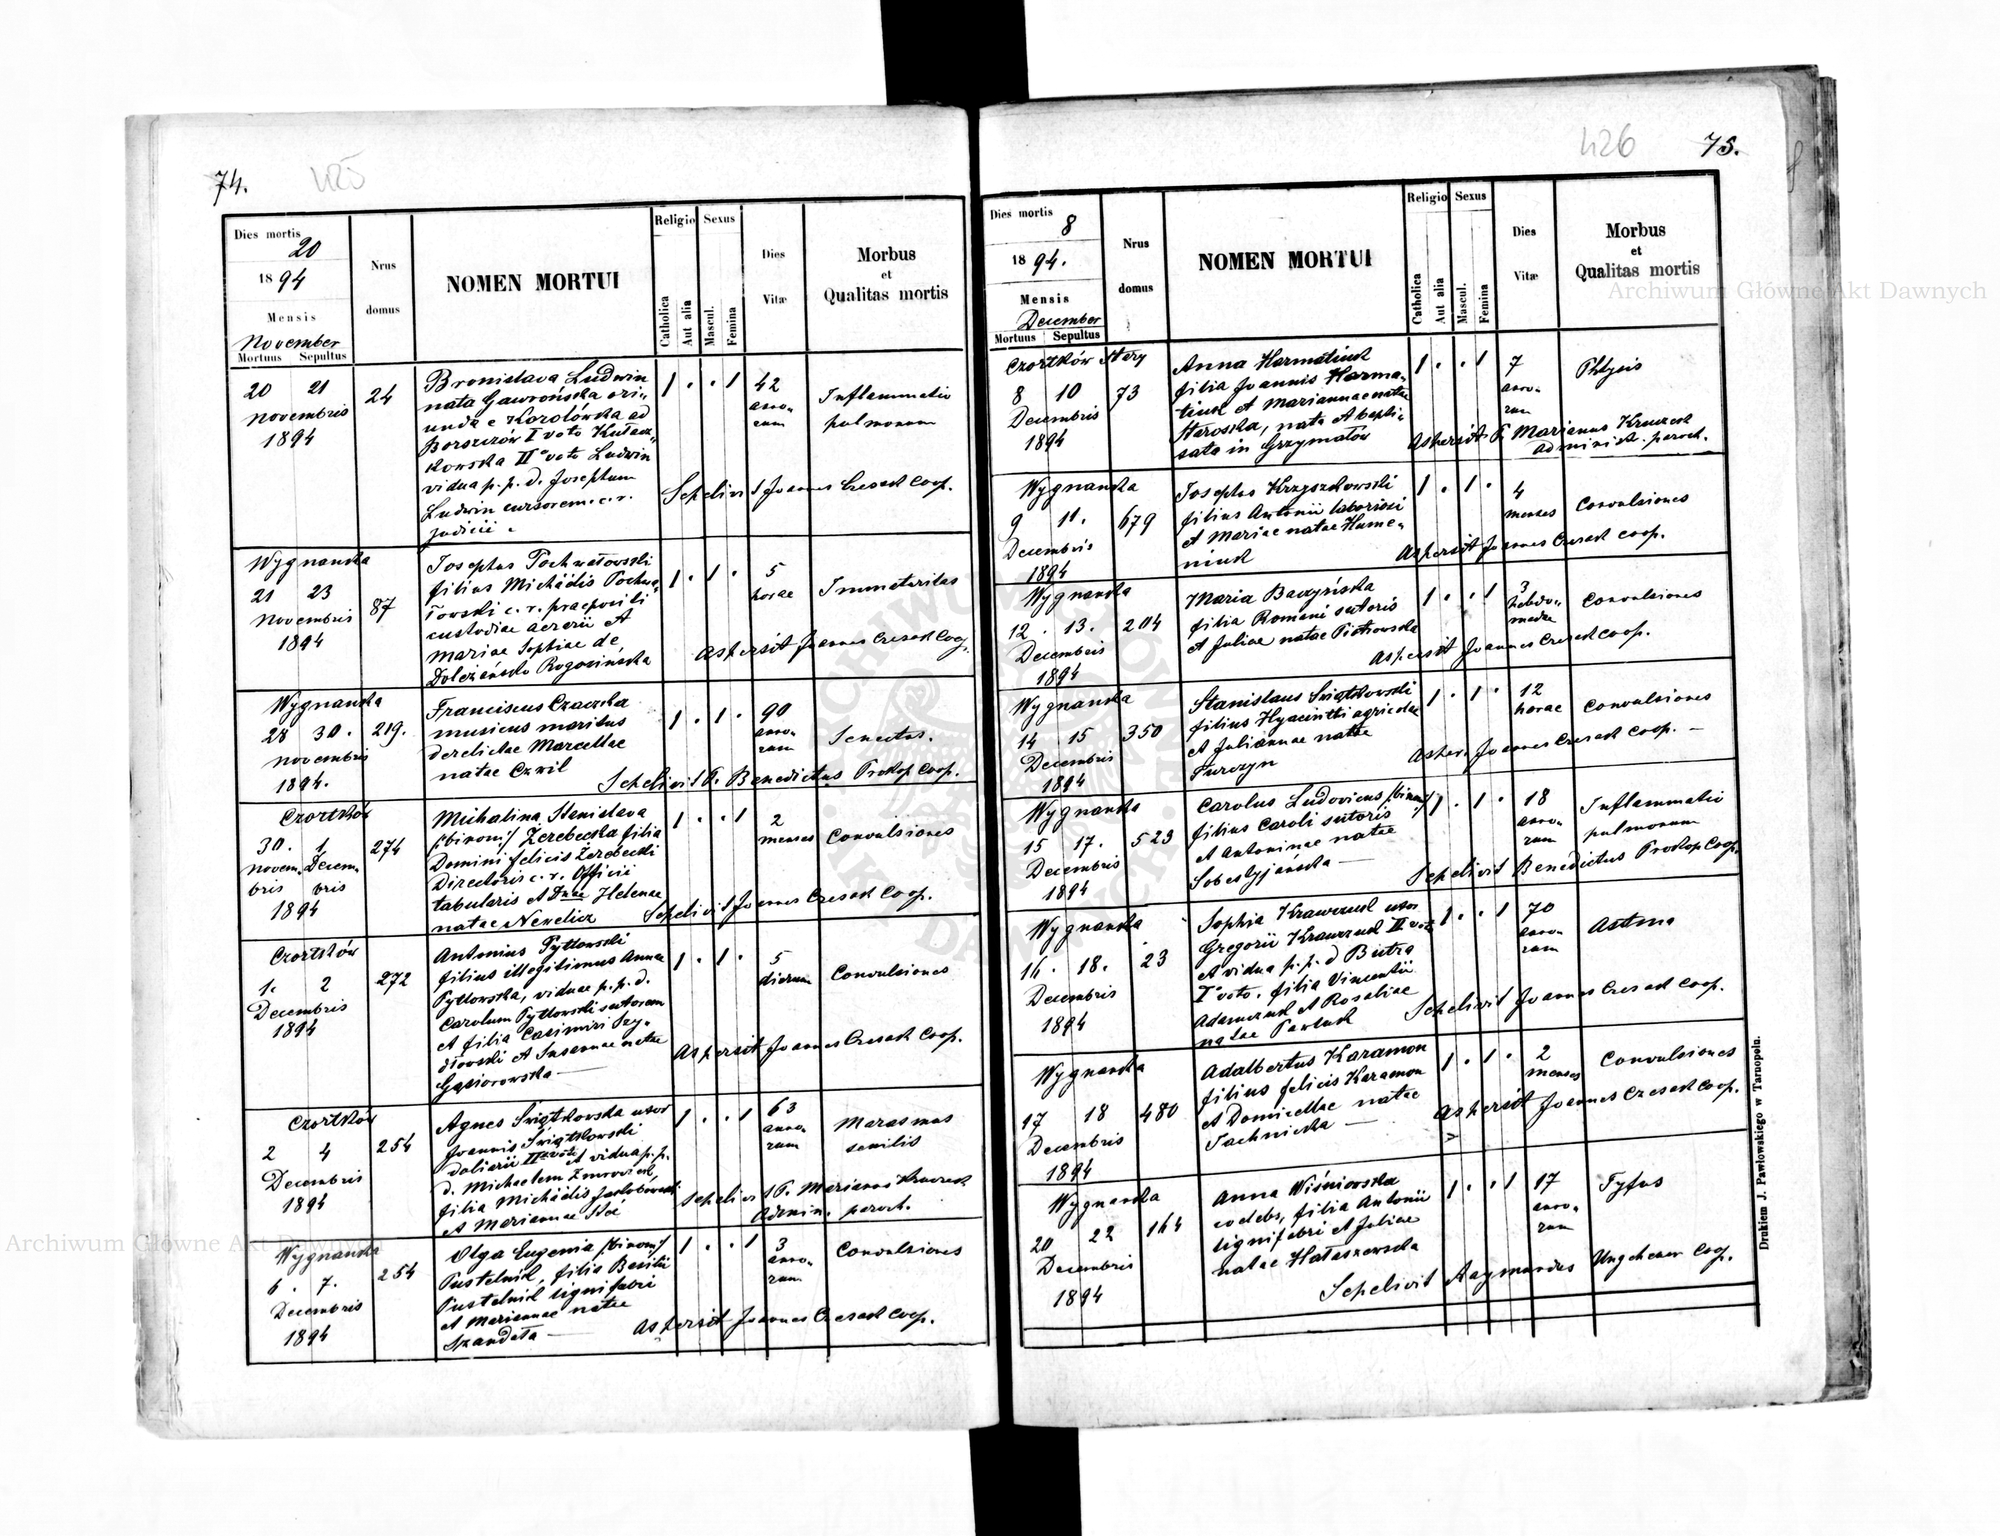 74.
425
Dies mortis
20
1894
Mensis
November
Mortuus Sepultus
Nrus domus
NOMEN MORTUI
Religio
Catholica
Aut alia
Sexus
Mascul.
Femina
Dies Vitæ
Morbus
et
Qualitas mortis
20 21
Novembris
1894
24
Bronislava Ludwin
nata Gawrońska ori-
unda e Korolówka ad
Borszczów I voto
kowska IIº voto Ludwin
vidua p. p. d. Josephum
Ludwin cursorem c. r.
judicii
1 . . 1
42
anno-
rum
Inflammatio
pulmonum
Sepelivit Joannes Czesak Coop.
Wygnanka
21 23
Novembris
1894
87
Josephus Pochwałowski
filius Michaëlis Pochwa-
łowski c. r. praepositi
custodiae aerarii et
Mariae Sophiae de
Rogozińska
1 . 1 .
5
horae
Immaturitas
Aspersit Joannes Czesak Coop.
Wygnanka
28 30.
Novembris
1894.
219.
Franciscus Czaczka
musicus maritus
derelictae Marcellae
natae Czwil
1 . 1 .
90
anno-
rum
Senectus.
Sepelivit P. Benedictus Prokop Coop.
Czortków
30. 1
Novem- Decem-
bris bris
1894
274
Michalina Stanislava
/:binom:/ Zerebecka filia
Domini Felicis Zerebecki
Directoris c. r. Officii
tabularis et Dnae Helenae
natae Newelicz
1 . . 1
2
menses
Convulsiones
Sepelivit Joannes Czesak Coop.
Czortków
1. 2
Decembris
1894
272
Antonius Pytlowski
filius illegitimus Annae
Pytlowska, viduae p. p. d.
Carolum Pytlowski sutorem
et filia Casimiri Szy-
dłowski et Susannae natae
Gąsiorowska —
1 . 1 .
5
dierum
Convulsiones
Aspersit Joannes Czesak Coop.
Czortków
2 4
Decembris
1894
254
Agnes Świątkowska uxor
Joannis Świątkowski
doliarii II voto et vidua p. p.
d. Michaelem
filia Michaëlis Jakubowski
et Mariannae
1 . . 1
63
anno-
rum
Marasmus
senilis
Sepelivit P. Marianus Kruczek
Admin. paroch.
Wygnanka
6. 7.
Decembris
1894
254
Olga Eugenia /:binom:/
Pustelnik, filia Basilii
Pustelnik lignifabri
et Mariannae natae
Szandała —
1 . . 1
3
anno-
rum
Convulsiones
Aspersit Joannes Czesak Coop.
426
75.
Dies mortis
8
1894.
Mensis
December
Mortuus Sepultus
Nrus domus
NOMEN MORTUI
Religio
Catholica
Aut alia
Sexus
Mascul.
Femina
Dies Vitæ
Morbus
et
Qualitas mortis
Czortków Stary
8 10
Decembris
1894
73
Anna Harmatiuk
filia Joannis Harma-
tiuk et Mariannae natae
Staroska, nata et bapti-
sata in Grzymałów
1 . . 1
7
anno-
rum
Phtysis
Aspersit P. Marianus Kruczek
Administ. paroch.
Wygnanka
9 11.
Decembris
1894
679
Josephus Krzyszkowski
filius Antonii laboriosi
et Mariae natae Hume-
niuk
1 . 1 .
4
menses
Convulsiones
Aspersit Joannes Czesak Coop.
Wygnanka
12. 13.
Decembris
1894
204
Maria Baczyńska
filia Romani sutoris
et Juliae natae Piotrowska
1 . . 1
3
hebdo-
madae
Convulsiones
Aspersit Joannes Czesak Coop.
Wygnanka
14 15
Decembris
1894
350
Stanislaus Świątkowski
filius Hyacinthi agricolae
et Juliannae natae
Turczyn
1 . 1 .
12
horae
Convulsiones
Asper. Joannes Czesak Coop. —
Wygnanka
15 17.
Decembris
1894
523
Carolus Ludovicus /:binom:/
filius Caroli sutoris
et Antoninae natae
—
1 . 1 .
18
anno-
rum
Inflammatio
pulmonum
Sepelivit Benedictus Prokop Coop.
Wygnanka
16. 18.
Decembris
1894
23
Sophia Krawczuk uxor
Gregorii Krawczuk II voto
et vidua p. p. d Butra
Iº voto. filia Vincentii
Adamczuk et Rosaliae
natae Pawluk
1 . . 1
70
anno-
rum
Astma
Sepelivit Joannes Czesak Coop.
Wygnanka
17 18
Decembris
1894
480
Adalbertus Karamon
filius Felicis Karamon
et Domicellae natae
Tachnicka —
1 . 1 .
2
menses
Convulsiones
Aspersit Joannes Czesak Coop.
Wygnanka
20 22
Decembris
1894
164
Anna Wiśniowska
coelebs, filia Antonii
lignifabri et Juliae
natae Hałaszewska
1 . . 1
17
anno-
rum
Tyfus
Sepelivit Raymundus Ungeheuer Coop.
Drukiem J. Pawłowskiego w Tarnopolu.
Archiwum Główne Akt Dawnych
Archiwum Główne Akt Dawnych
ARCHIWUM GŁÓWNE AKT DAWNYCH